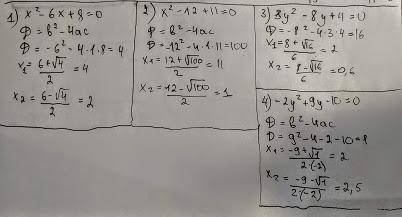 1) x² - 6x + 8 = 0
D = b² - 4ac
D = -6² - 4·1·8 = 4
x₁ = (6+√4)/2 = 4
x₂ = (6-√4)/2 = 2
2) x² - 12 + 11 = 0
D = b² - 4ac
D = -12² - 4·1·11 = 100
x₁ = (12+√100)/2 = 11
x₂ = (12-√100)/2 = 1
3) 3y² - 8y + 4 = 0
D = -8² - 4·3·4 = 16
x₁ = (8+√16)/6 = 2
x₂ = (8-√16)/6 = 0,6
4) -2y² + 9y - 10 = 0
D = b² - 4ac
D = 9² - 4-2-10 = 1
x₁ = (-9+√1)/(2·(-2)) = 2
x₂ = (-9-√1)/(2·(-2)) = 2,5